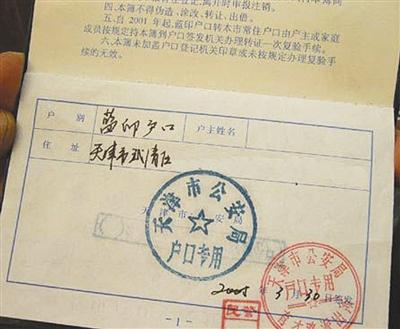 离开时申报注销。
四.本簿不得伪造、涂改、转让、出借。
五.自 2001 年起,蓝印户口转本市常住户口由户主或家庭
成员按规定持本簿到户口签发机关办理转证一次复验手续。
六.本簿未加盖户口登记机关印章或未按规定办理复验手
续的无效。
户 别 蓝印户口 户主姓名
住 址 天津市武清区
天津市公安局
户口专用
天津市公安局
户口专用
2005 年 3 月 30 日签发
-1-